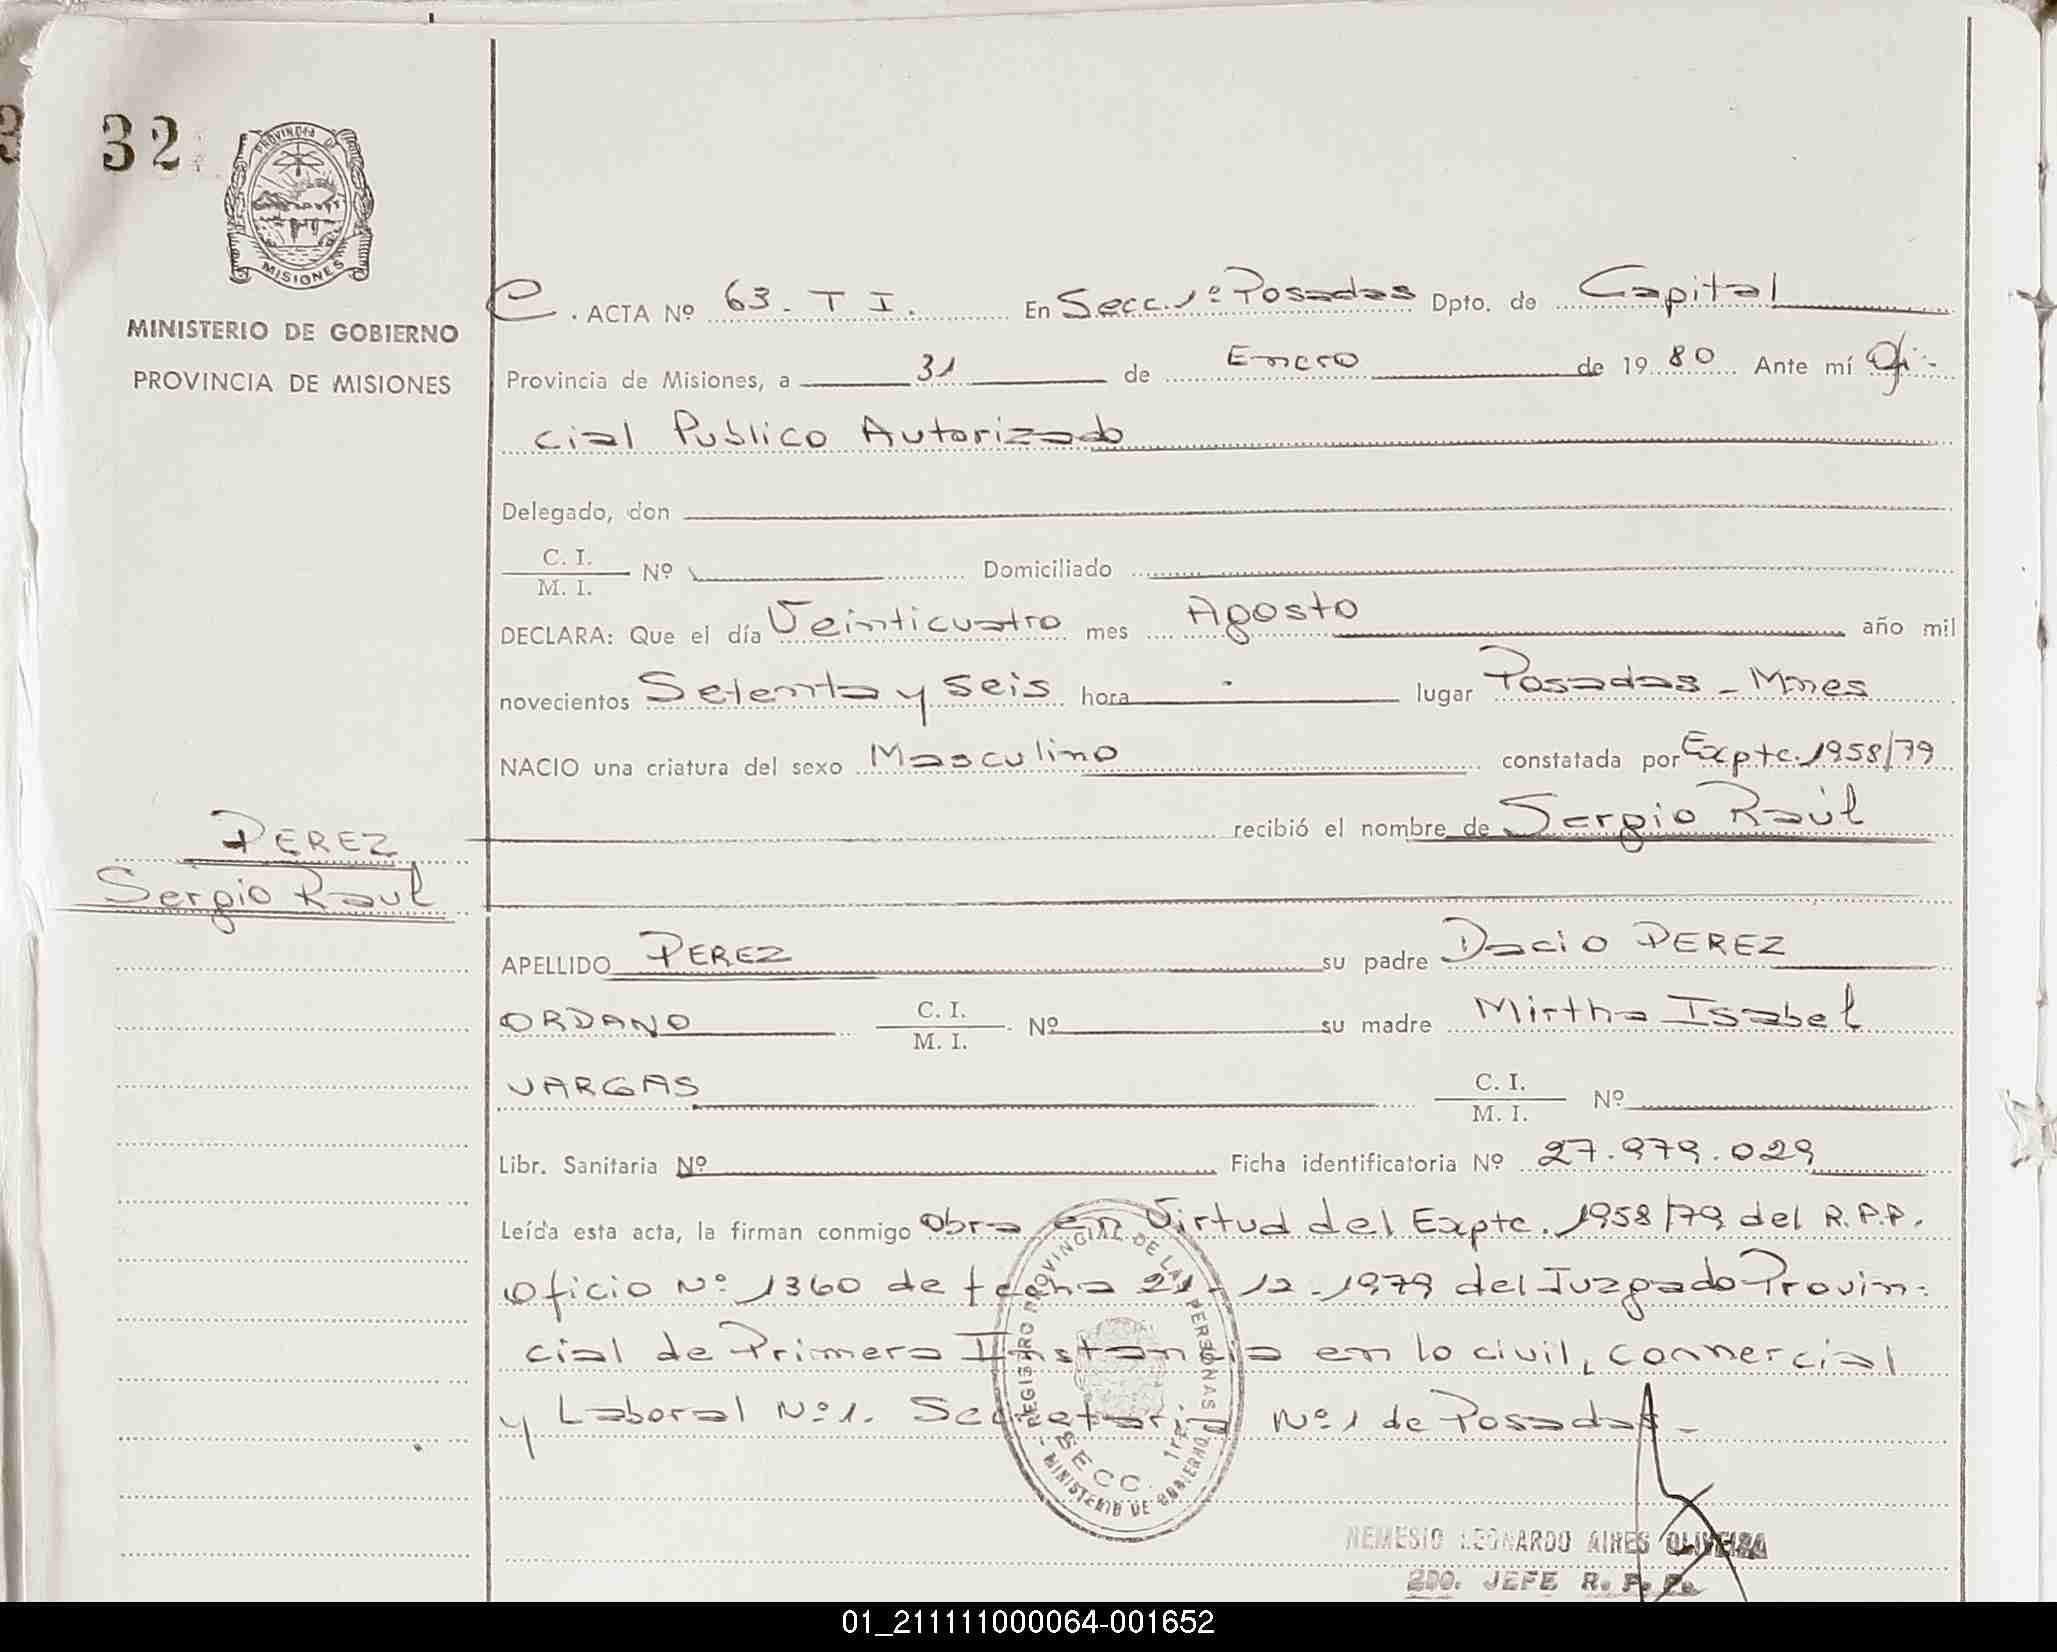 32
PROVINCIA DE
MISIONES
MINISTERIO DE GOBIERNO
PROVINCIA DE MISIONES
PEREZ
Sergio Raul
C. ACTA Nº 63. T I. En Secc. 1º Posadas Dpto. de Capital
Provincia de Misiones, a 31 de Enero de 1980 Ante mí Ofi-
cial Publico Autorizado
Delegado, don
C. I.
M. I. Nº Domiciliado
DECLARA: Que el día Veinticuatro mes Agosto año mil
novecientos Setenta y seis hora - lugar Posadas - Mnes
NACIO una criatura del sexo Masculino constatada por Expte. 1958/79
recibió el nombre de Sergio Raúl
APELLIDO PEREZ su padre Dacio PEREZ
ORDANO C. I. M. I. Nº su madre Mirtha Isabel
VARGAS C. I. M. I. Nº
Libr. Sanitaria Nº Ficha identificatoria Nº 27.979.029
Leída esta acta, la firman conmigo Obra en Virtud del Expte. 1958/79 del R.P.P.
Oficio Nº 1360 de fecha 21-12-1979 del Juzgado Provin-
cial de Primera Instancia en lo civil, comercial
y Laboral Nº 1. Secretaria Nº 1 de Posadas -
REGISTRO PROVINCIAL DE LAS PERSONAS
SECC. 1ra.
MINISTERIO DE GOBIERNO
NEMESIO LEONARDO AIRES OLIVEIRA
2DO. JEFE R. P. P.
01_211111000064-001652